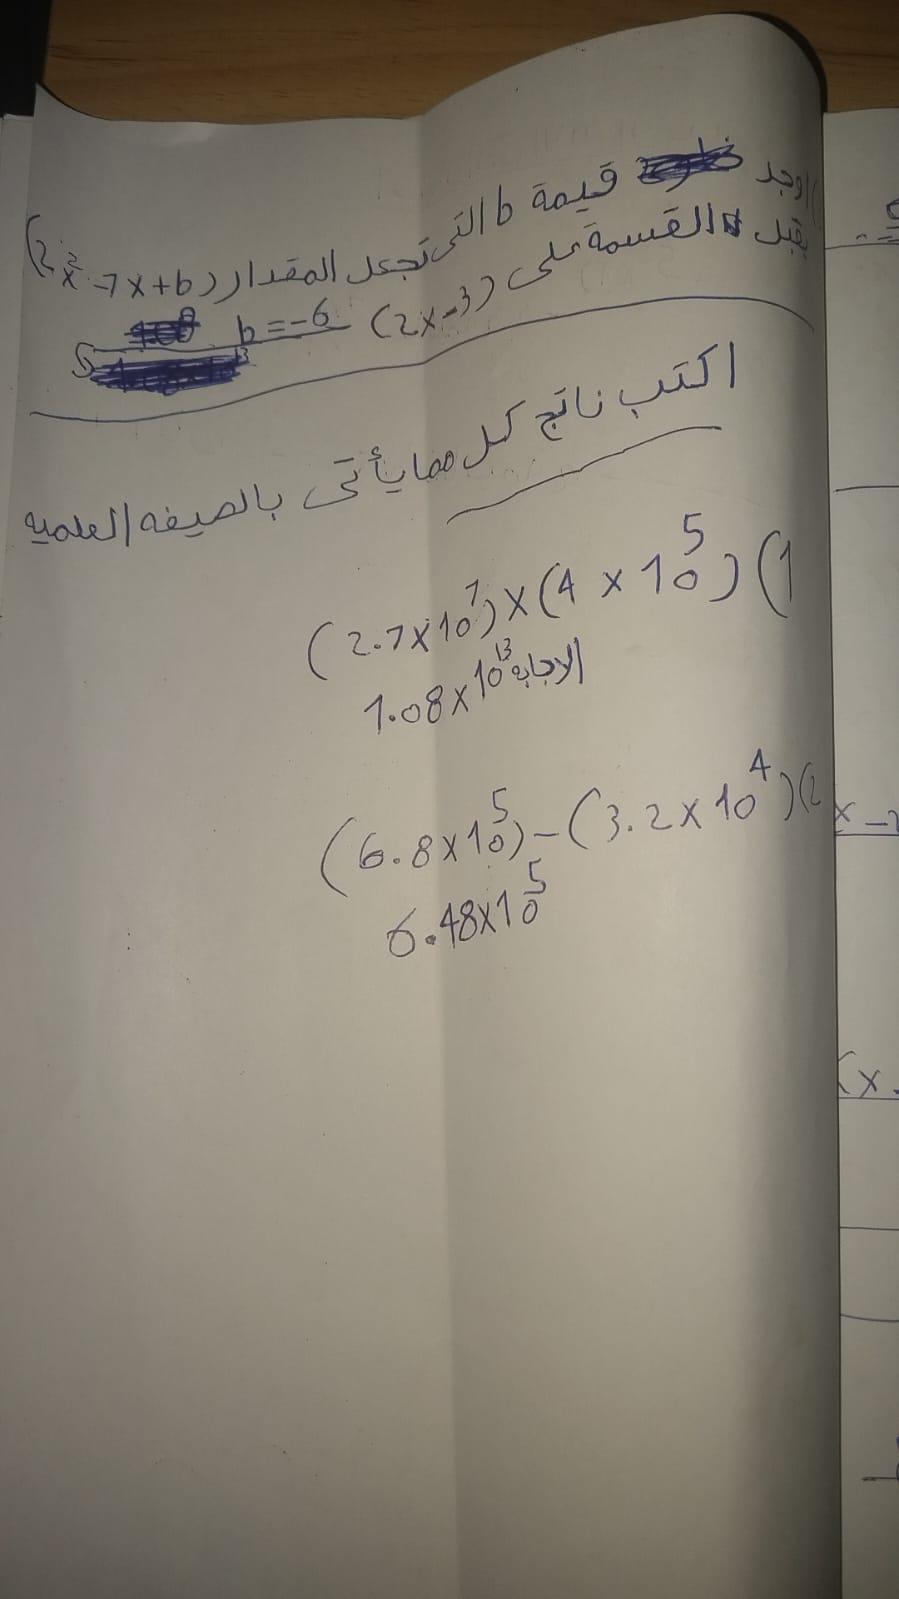 اوجد قيمة b التي تجعل المقدار (2x² -7x+b)
يقبل القسمة على (2x-3)
b=-6
اكتب ناتج كل مما يأتى بالصيغه العلميه
1) (2.7×10⁷)×(4×10⁵)
الاجابه 1.08×10¹³
2) (6.8×10⁵)-(3.2×10⁴)
6.48×10⁵